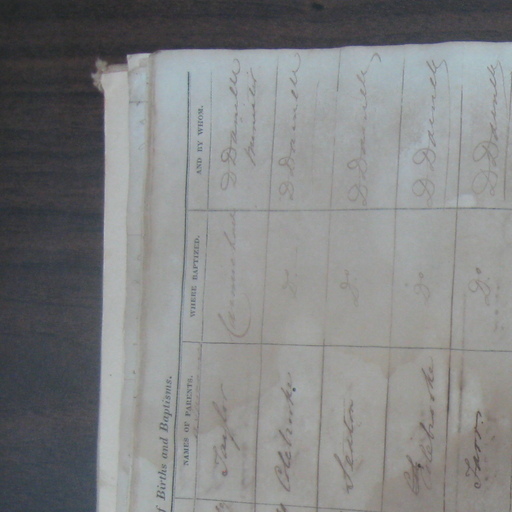 f Births and Baptisms.
NAMES OF PARENTS. WHERE BAPTIZED. AND BY WHOM.
Taylor D Danielle
Minister
Colebrooke. Do D Danielle
Sexton Do D Danielle
Colebrooke Do D Danielle
Farr Do D Danielle